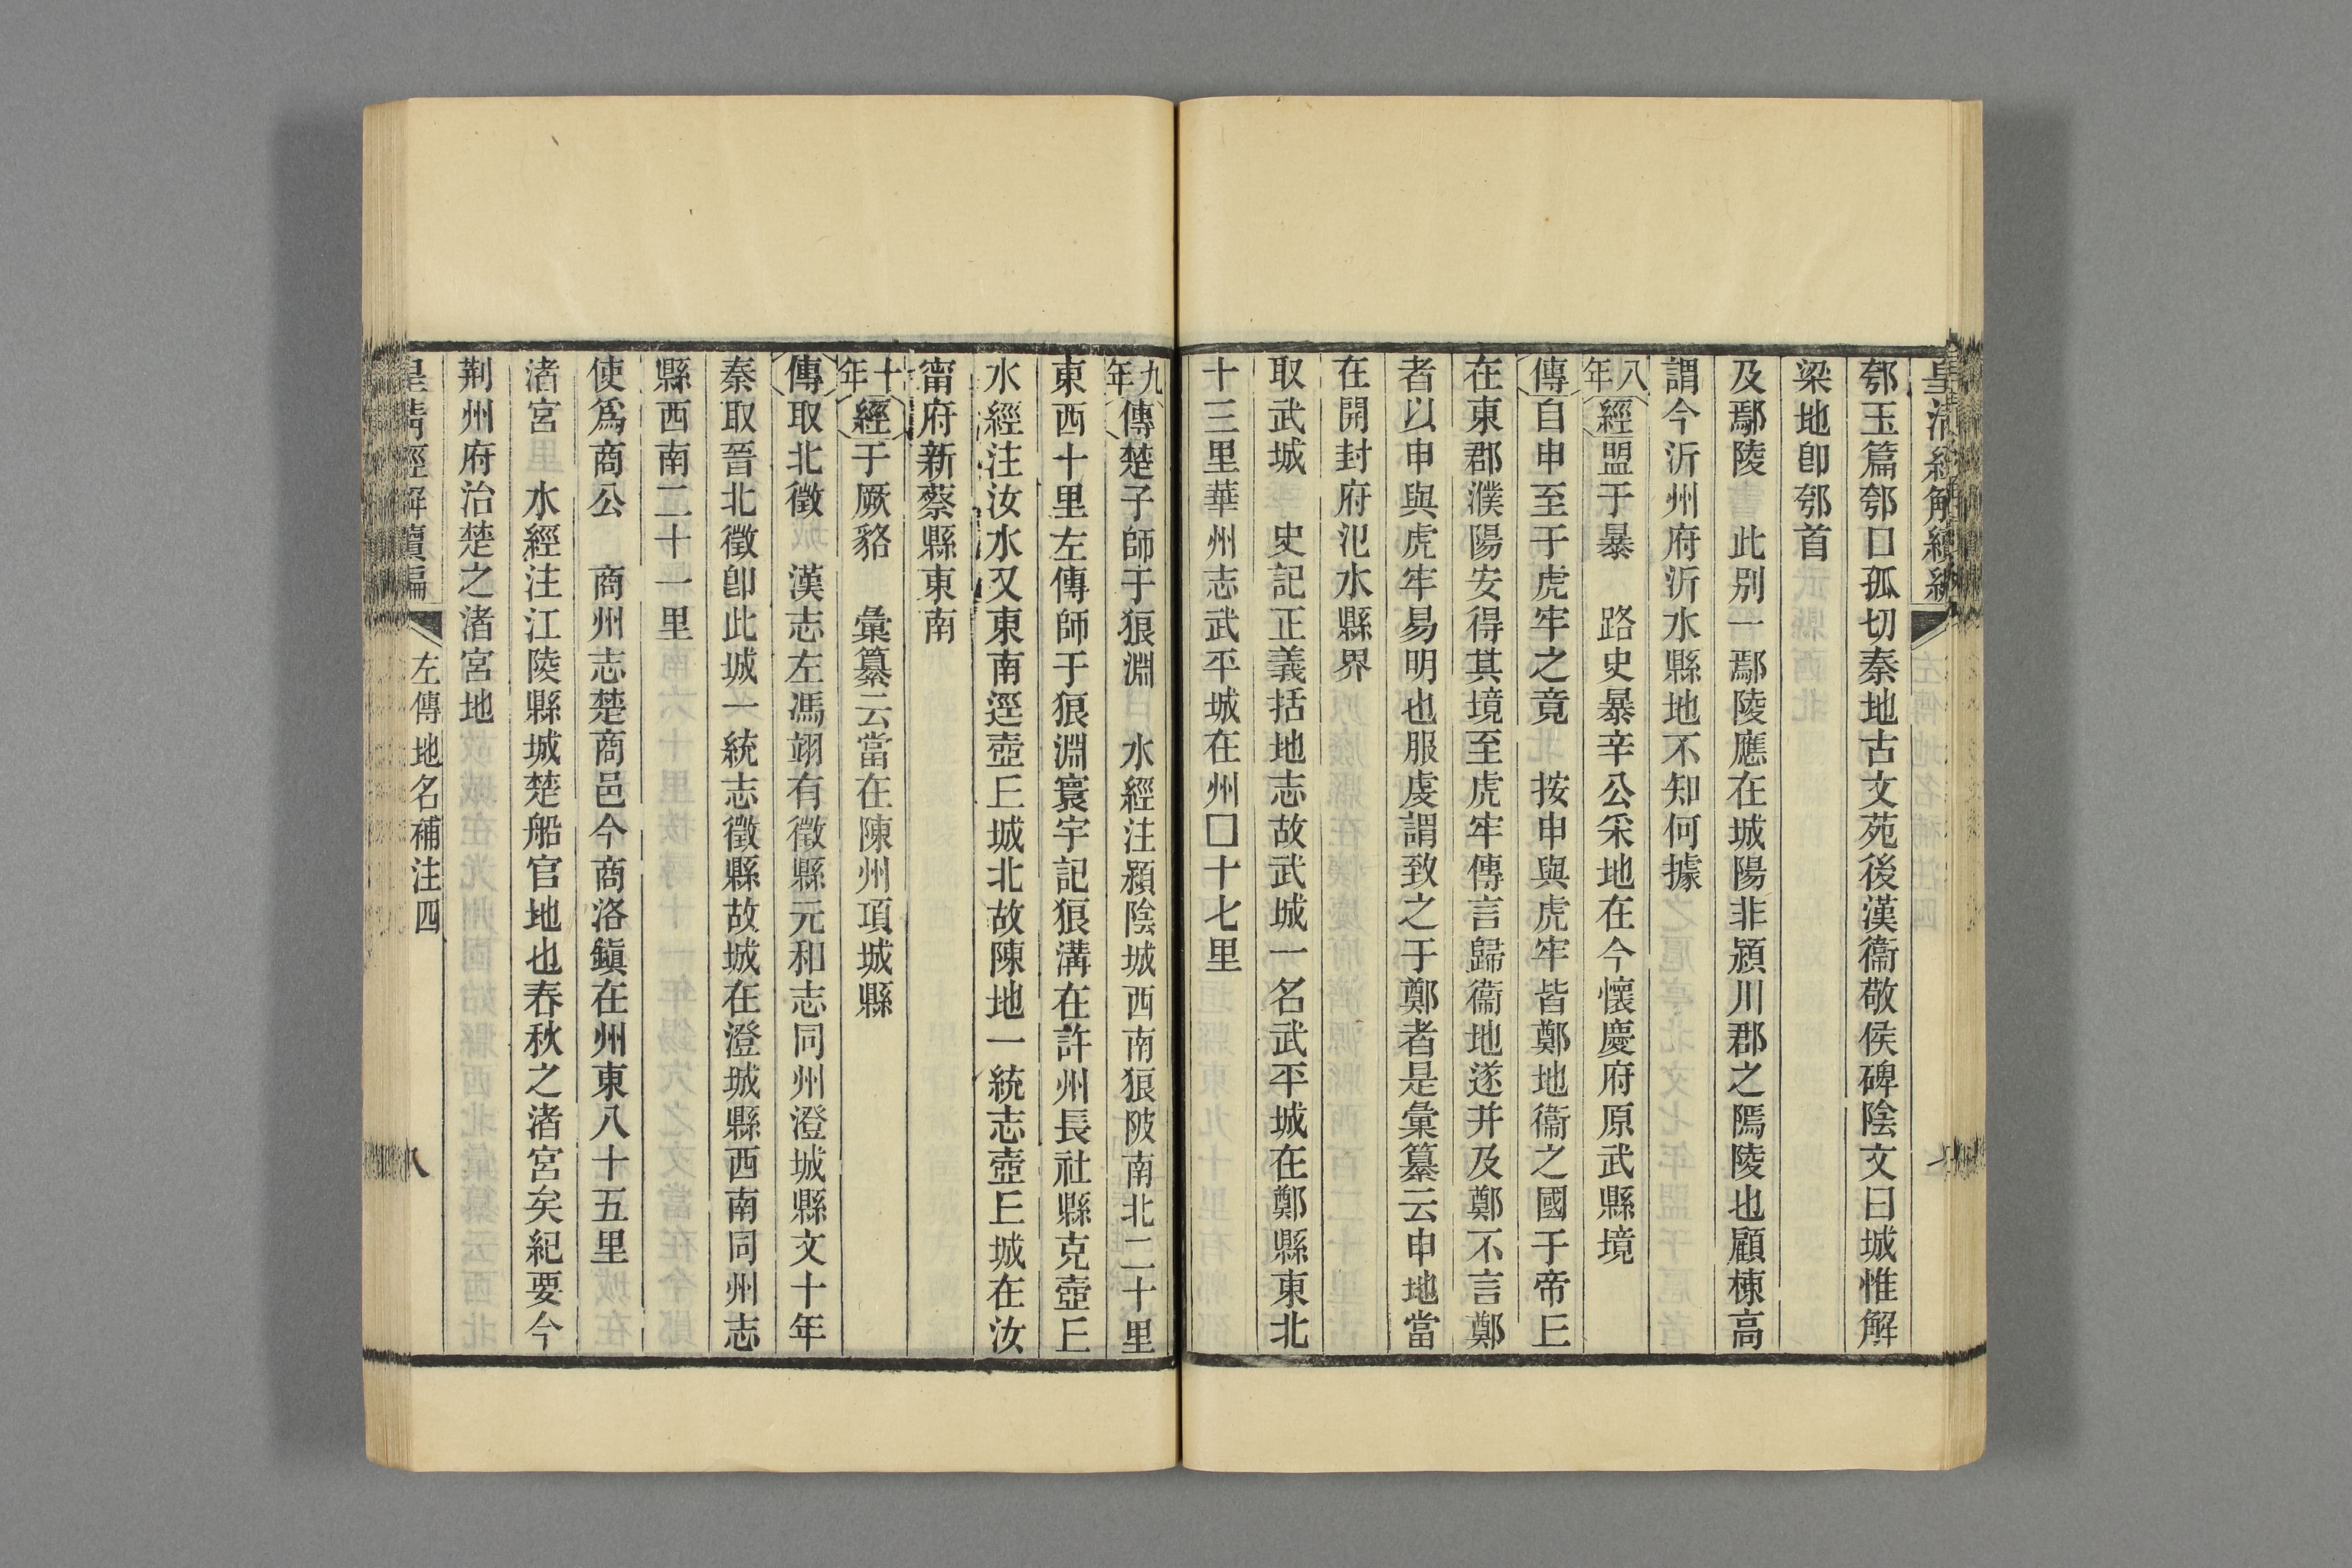 皇清經解續編
郀玉篇郀口孤切秦地古文苑後漢衞敬侯碑陰文曰城惟解
梁地卽郀首
及鄢陵　此别一鄢陵應在城陽非潁川郡之隝陵也顧棟高
謂今沂州府沂水縣地不知何據
八年經盟于暴　路史暴辛公采地在今懷慶府原武縣境
傳自申至于虎牢之竟　按申與虎牢皆鄭地衞之國于帝丘
在東郡濮陽安得其境至虎牢傳言歸衞地遂并及鄭不言鄭
者以申與虎牢易明也服虔謂致之于鄭者是彙纂云申地當
在開封府汜水縣界
取武城　史記正義括地志故武城一名武平城在鄭縣東北
十三里華州志武平城在州□十七里
九年傳楚子師于狼淵　水經注潁陰城西南狼陂南北二十里
東西十里左傳師于狼淵寰宇記狼溝在許州長社縣克壺丘
水經注汝水又東南逕壺丘城北故陳地一統志壺丘城在汝
甯府新蔡縣東南
十年經于厥貉　彙纂云當在陳州項城縣
傳取北徵　漢志左馮翊有徵縣元和志同州澄城縣文十年
秦取晉北徵卽此城一統志徵縣故城在澄城縣西南同州志
縣西南二十一里
使爲商公　商州志楚商邑今商洛鎭在州東八十五里
渚宮　水經注江陵縣城楚船官地也春秋之渚宮矣紀要今
荆州府治楚之渚宮地
皇清經解續編　左傳地名補注四　八